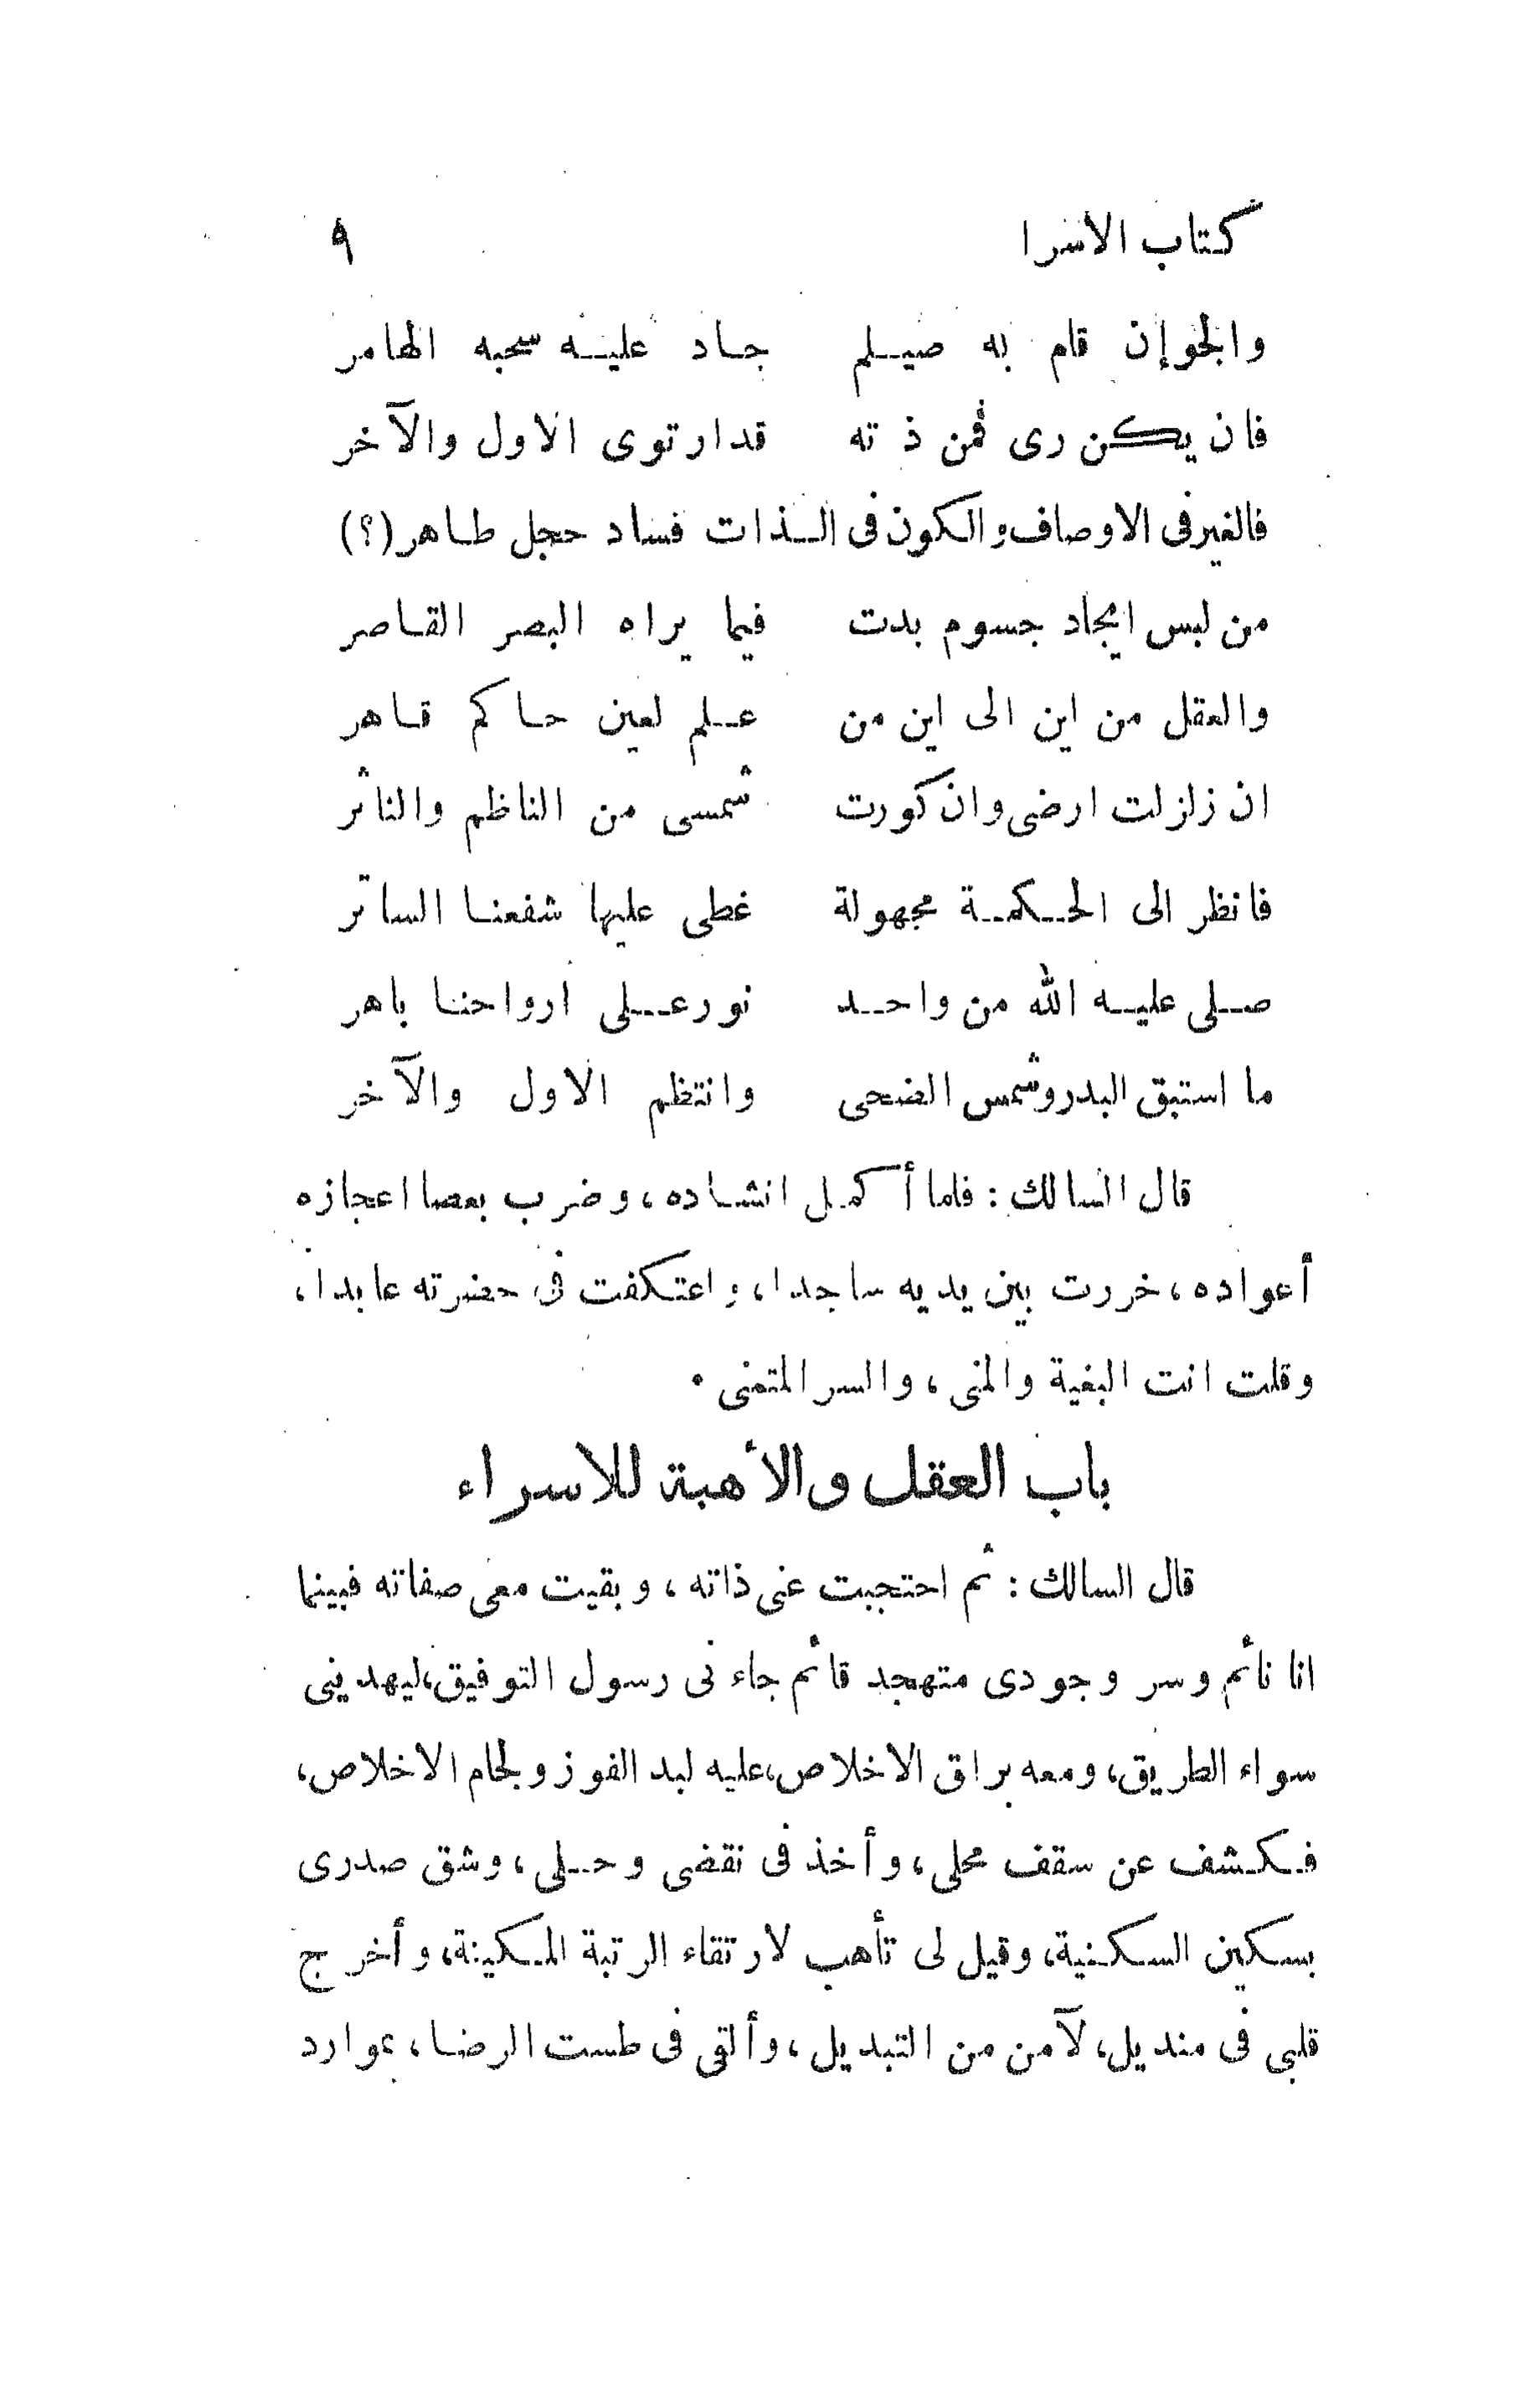 كتاب الاسرا ٩
والجو إن قام به صيلم جاد عليه سحبه الهامر
فان يكن رى فمن ذ ته قد ارتوى الاول والآخر
فالغير فى الاوصاف والكون فى الذات فساد حجل طاهر (؟)
من لبس ايجاد جسوم بدت فيما يراه البصر القاصر
والعقل من اين الى اين من علم لعين حاكم قاهر
ان زلزلت ارضى وان كورت شمسى من الناظم والناثر
فانظر الى الحكمة مجهولة غطى عليها شفعنا الساتر
صلى عليه الله من واحد نور على ارواحنا باهر
ما استبق البدر وشمس الضحى وانتظم الاول والآخر
قال السالك : فلما أكمل انشاده ، وضرب بعصا اعجازه
أعواده ، خررت بين يديه ساجدا ، واعتكفت فى حضرته عابدا ،
وقلت انت البغية والمنى ، والسر المتمنى .
باب العقل والأهبة للاسراء
قال السالك : ثم احتجبت عنى ذاته ، وبقيت معى صفاته فبينما
انا نائم وسر وجودى متهجد قائم جاء نى رسول التوفيق، ليهدينى
سواء الطريق، ومعه براق الاخلاص، عليه لبد الفوز ولجام الاخلاص،
فكشف عن سقف محلى ، وأخذ فى نقضى وحلى ، وشق صدرى
بسكين السكنية، وقيل لى تأهب لارتقاء الرتبة المكينة، وأخرج
قلبى فى منديل، لآمن من التبديل ، وألقى فى طست الرضا ، بموارد